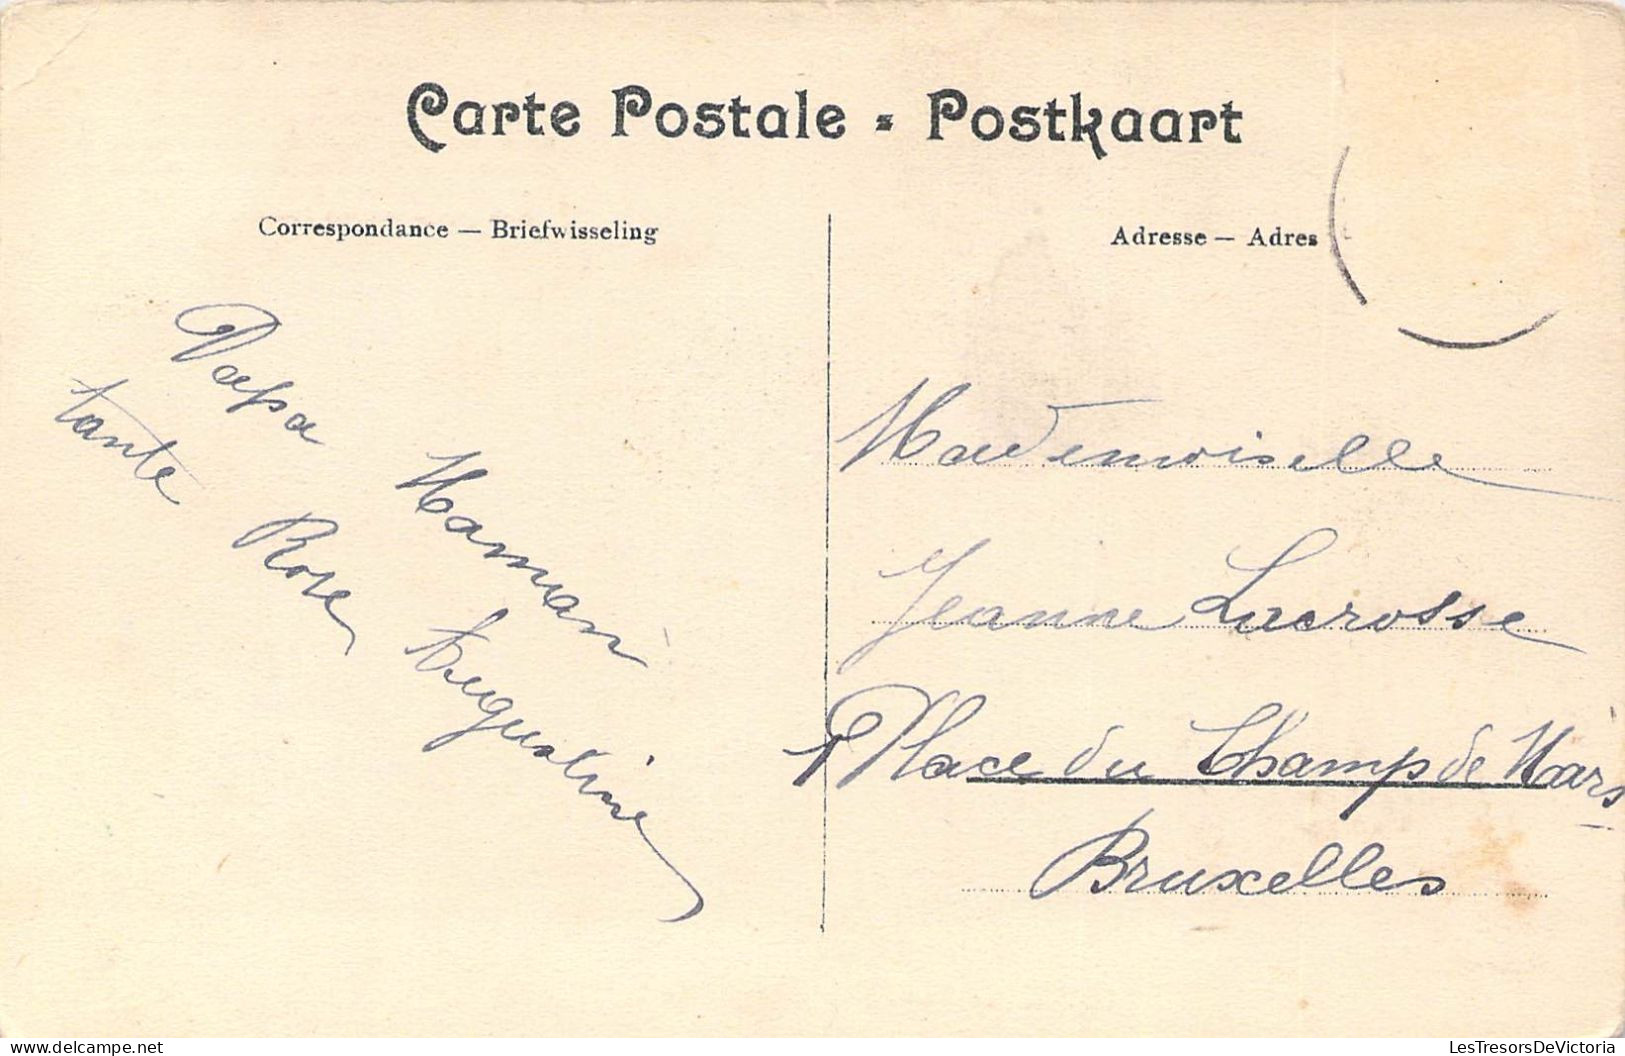 Carte Postale - Postkaart
Correspondance — Briefwisseling
Adresse — Adres
Papa Maman
tante Rose Augustine
Mademoiselle
Jeanne Lacrosse
Place du Champ de Mars
Bruxelles
LesTresorsDeVictoria